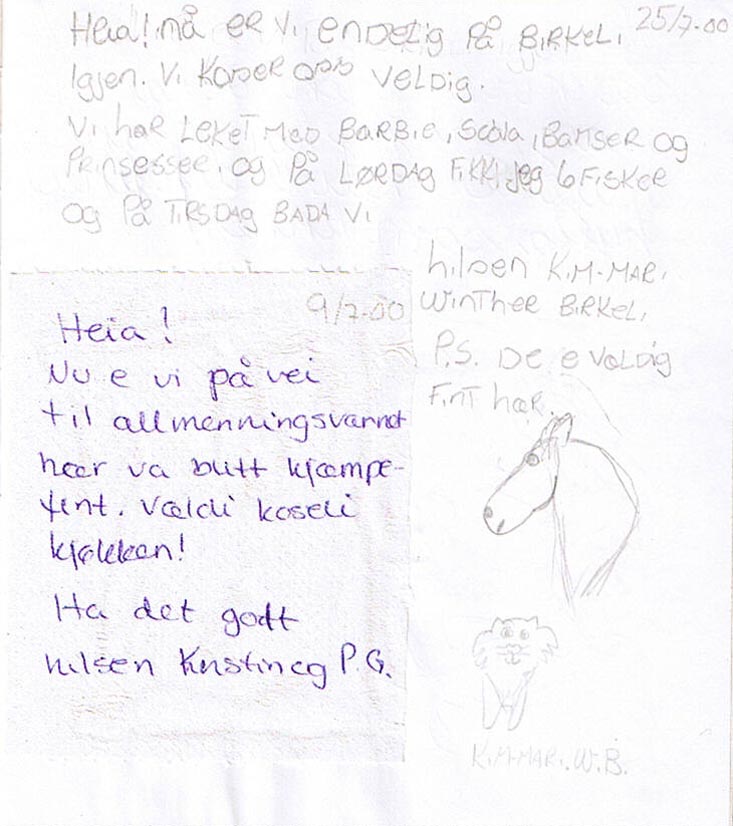 25/7-00
Heia! nå er vi endelig på Birkeli
Igjen. Vi Koser oss veldig.
Vi har Leket med Barbie, Scala, Bamser og
Prinsesser, og på Lørdag fikk jeg 6 Fisker
og på Tirsdag Bada vi
hilsen Kim-Mari
Winther Birkeli
P.S. De e valdig
Fint hær.
9/7-00
Heia!
Nu e vi på vei
til allmenningsvannet
hær va blitt kjæmpe-
fint. Vældi koseli
kjøkken!
Ha det godt
hilsen Kristin og P.G.
Kim-Mari. W.B.